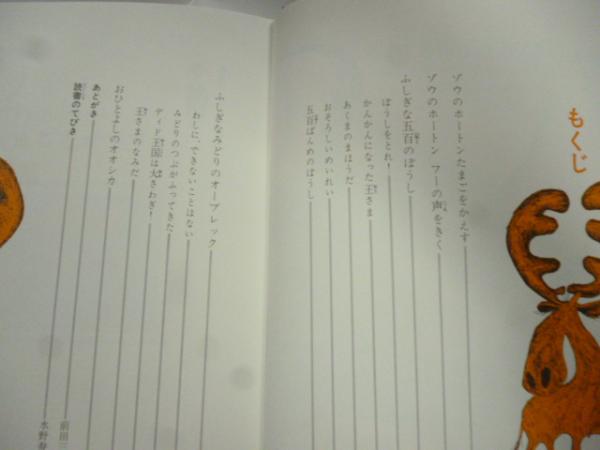 もくじ
ゾウのホートンたまごをかえす
ゾウのホートン フーの声をきく
ふしぎな五百のぼうし
ぼうしをとれ!
かんかんになった王さま
あくまのまほうだ
おそろしいめいれい
五百ばんめのぼうし
ふしぎなみどりのオーブレック
わしに、できないことはない
みどりのつぶがふってきた
ディド王国は大さわぎ!
王さまのなみだ
おひとよしのオオシカ
あとがき
前田三
読書のてびき
水野